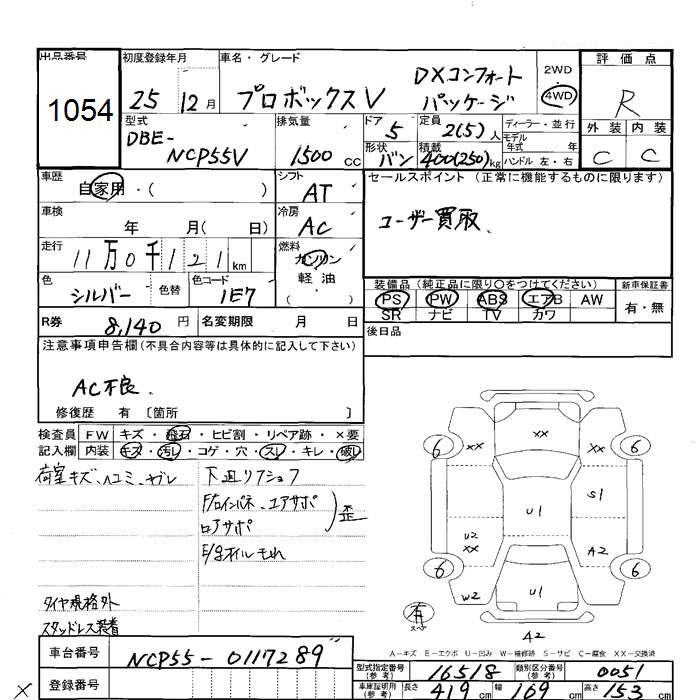 出品番号 初度登録年月 車名・グレード 評価点
1054 25 12月 プロボックスV DXコンフォート パッケージ 2WD 4WD R
型式 DBE-NCP55V 排気量 1500cc ドア 5 定員 2(5)人 ディーラー・並行 外装 内装
形状 バン 積載 400(250)kg モデル年式 年 ハンドル 左・右 C C
車歴 自家用・( ) シフト AT セールスポイント(正常に機能するものに限ります)
車検 年 月( 日) 冷房 AC ユーザー買取
走行 11万0千121km 燃料 ガソリン 軽油 ( )
色 シルバー 色替 色コード 1E7 装備品(純正品に限り○をつけてください) 新車保証書
PS PW ABS エアB AW 有・無
SR ナビ TV カワ
R券 8,140円 名変期限 月 日 後日品
注意事項申告欄(不具合内容等は具体的に記入して下さい)
AC不良.
修復歴 有 〔箇所 〕
検査員 FW キズ・飛石・ヒビ割・リペア跡・×要
記入欄 内装 キズ・汚レ・コゲ・穴・スレ・キレ・破レ
荷室キズ、ヘコミ、ワレ 下廻リ
F/ロインパネ、コアサポ
ロアサポ 歪
E/gオイルもれ
タイヤ規格外
スタッドレス装着
6 XX XX XX 6
S1
U1
U2 XX A2
6 6
W2 U1
有 スペ A2
A-キズ E-エクボ U-凹み W-補修跡 S-サビ C-腐食 XX-交換済
車台番号 NCP55-0117289
登録番号
型式指定番号(参考) 16518 類別区分番号(参考) 0051
車庫証明用(参考) 長さ 419cm 幅 169cm 高さ 153cm
×